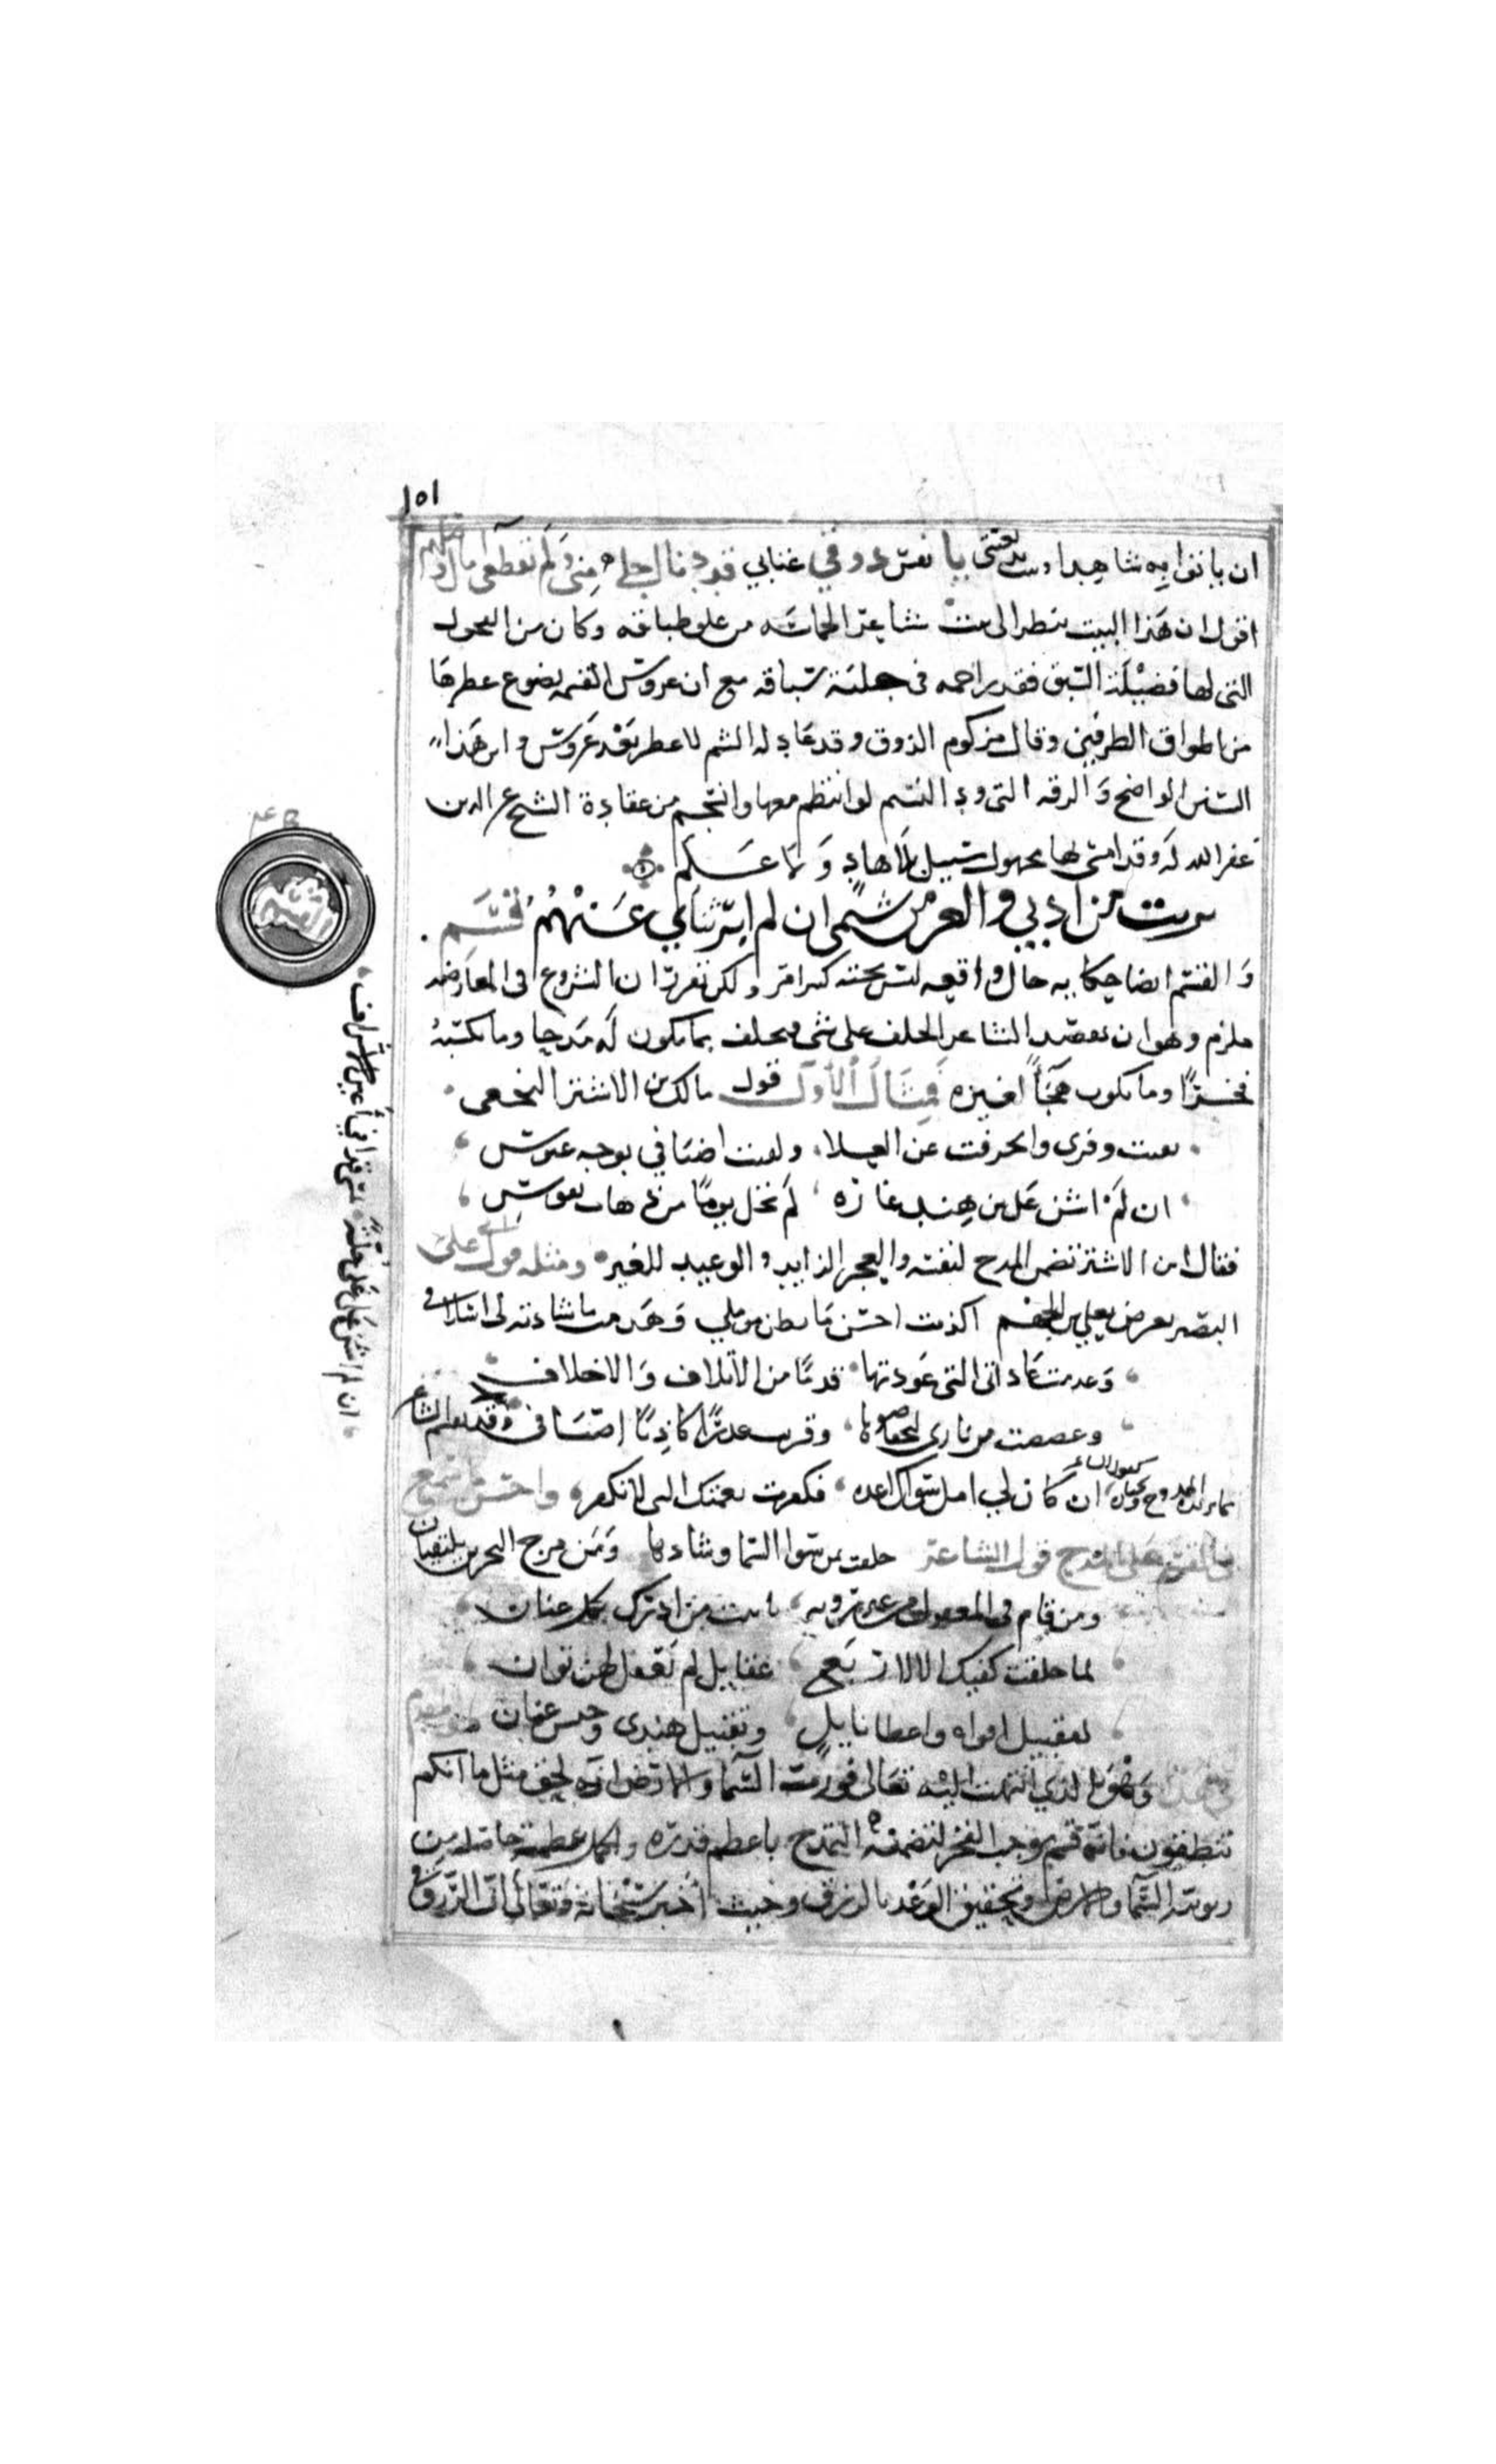 ١٥١
ان ياتوا به شاهدا وبيت بديعيتي يا نفس ذوقي عتابي قد دنا اجلي مني ولم تقطعي امال وصلهم
اقول ان هذا البيت ينظر الى بيت شاعر الحماسه من علو طباقه وكان من الفحول
التي لها فضيلة السبق فقد زاحمه في حلبة سباقه مع ان عروس القسم يضوع عطرها
من اطواق الطرفين وقال مزكوم الذوق وقد عاد له الشم لا عطر بعد عروس واين هذا
السنن الواضح والرقه التي ود النسيم لو انتظم معها وانسجم من عقادة الشيخ عز الدين
غفر الله له وقد امتثلها بجهول سبيل بلا هاد ولا علم
برئت من ادبي والعز من شيمي ان لم ابر بنأي عنهم قسمي
والقسم ايضا حكايه حال واقعه ليس تحته كبير امر ولكن تقرر ان الشروع في المعارضه
ملزم وهو ان يقصد الشاعر الحلف على شي فيحلف بما يكون له مدحا وما يكسبه
فخرًا وما يكون هجاً لغيره فمثال الاول قول مالك بن الاشتر النخعي
بقيت وفري وانحرفت عن العلا ولقيت اضيافي بوجه عبوس
ان لم اشن على بن هند غارة لم تخل يومًا من ذهاب نفوس
فقال ابن الاشتر تضمن المدح لنفسه والفخر الزايد والوعيد للغير ومثله قول ابي علي
البصير يعرض بعلي بن الجهم اكذبت احسن ما يظن مؤملي وهدمت ما شادته لي اسلافي
وعدمت عاداتي التي عودتها قدمًا من الاتلاف والاخلاف
وغضضت من ناري ليخفى ضوها وقريت عذرًا كاذبًا اضيافي وقد يقسم الشاعر
بما يريده الممدوح ويختاره كقول الشاعر ان كان لي امل سواك اعده فكفرت نعمتك التي لا تكفر واحسن ما سمع
في القسم على المدح قول الشاعر حلفت بمن سوا السما وشادها ومن مرج البحرين يلتقيان
ومن قام في المعقول من غير رويه باثبت من ادراك كل عنان
لما خلقت كفيك الا لاربع عقايل لم تعقل لهن ثوان
لتقبيل افواه واعطا نايل وتقليب هندي وحبس عنان
في هذا وهو الذي انتهت اليه تعالى فورب السما والارض انه لحق مثل ما انكم
تنطقون فانه قسم يوجب الفخر لتضمنه التمدح باعظم قدره واكمل عظمة حاصله من
ربوبية السما والارض وتحقيق الوعد بالرزق وحيث اخبر سبحانه وتعالى ان الرزق في
ان لم اشن على علي حلةً تمسي قذى في اعين الاشراف